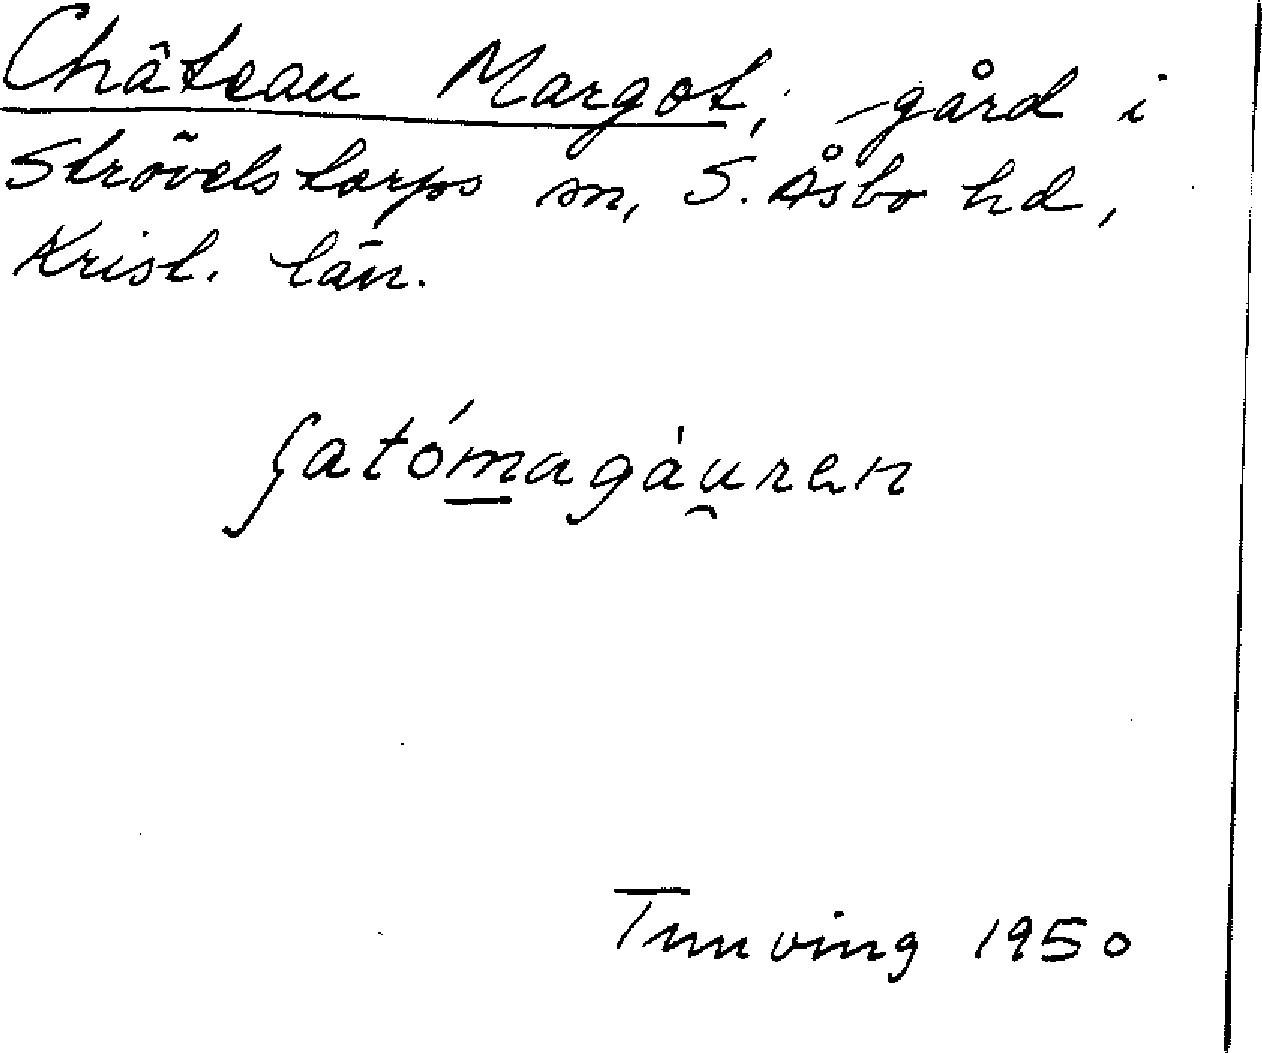 Château Margot, gård i
Strövelstorps sn, S. Åsbo hd,
Krist. län.
ʃatómagáu̯ren
Tunving 1950